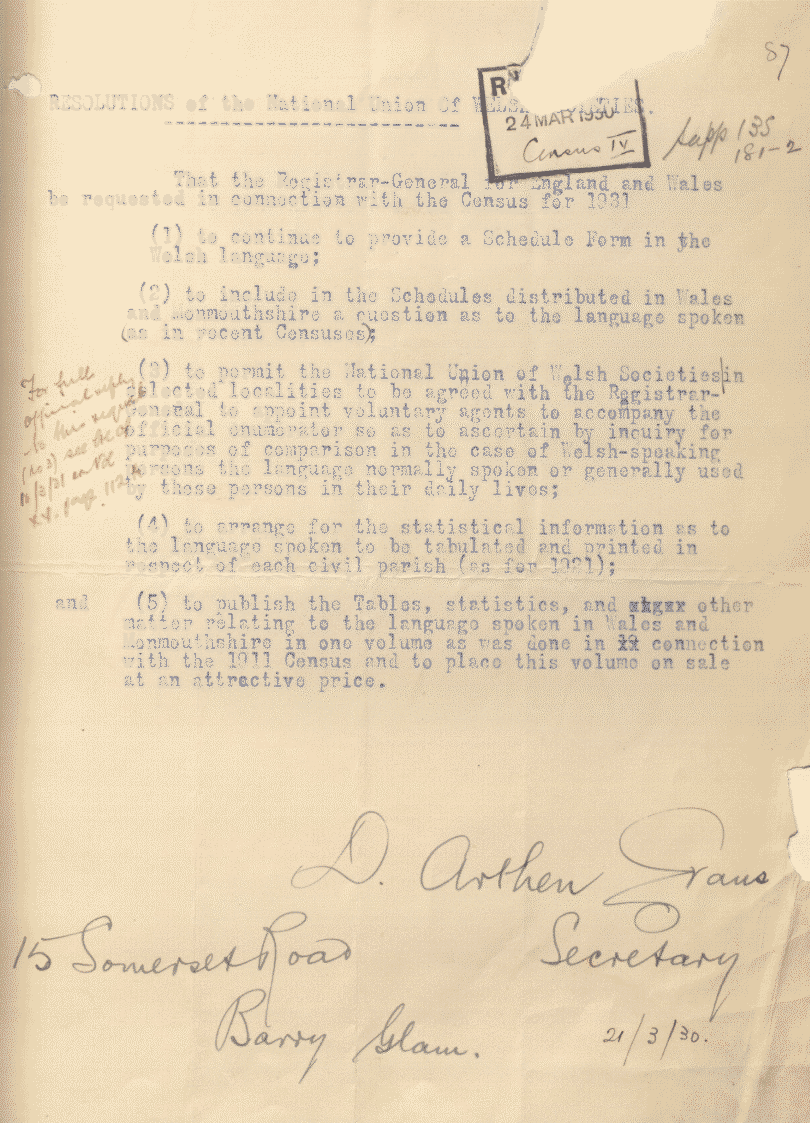 87
RESOLUTIONS of the National Union Of WELSH SOCIETIES.
24 MAR 1930
Census IV
Supp 135
181-2
That the Registrar-General for England and Wales
be requested in connection with the Census for 1931
(1) to continue to provide a Schedule Form in the
Welsh language;
(2) to include in the Schedules distributed in Wales
and Monmouthshire a question as to the language spoken
(as in recent Censuses);
(3) to permit the National Union of Welsh Societies in
selected localities to be agreed with the Registrar-
General to appoint voluntary agents to accompany the
official enumerator so as to ascertain by inquiry for
purposes of comparison in the case of Welsh-speaking
persons the language normally spoken or generally used
by these persons in their daily lives;
For full
official reply
to this request
(no 3) see
10/3/31 in Vol
page 112
(4) to arrange for the statistical information as to
the language spoken to be tabulated and printed in
respect of each civil parish (as for 1921);
and (5) to publish the Tables, statistics, and other
matter relating to the language spoken in Wales and
Monmouthshire in one volume as was done in connection
with the 1911 Census and to place this volume on sale
at an attractive price.
D. Arthen Evans
Secretary
15 Somerset Road
Barry Glam.
21/3/30.